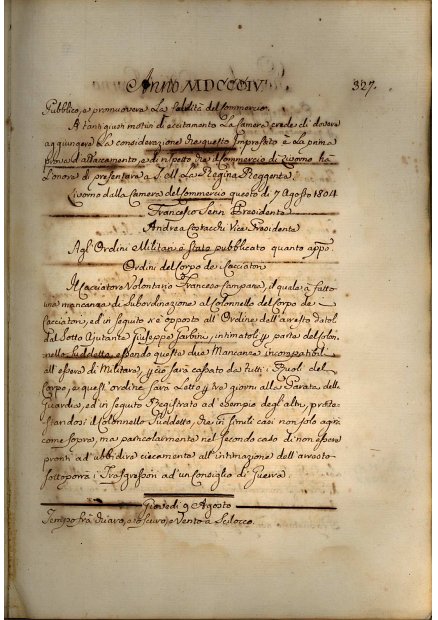 Anno MDCCCIV. 327.
Pubblico, e promuovere la facilità del Commercio.
A tanti giusti motivi di eccitamento la Camera crede di dovere
aggiungere la considerazione che questo Imprestito è la prima
prova d'attaccamento, e di rispetto che il Commercio di Livorno ha
l'onore di presentare a S. M. la Regina Reggente.
Livorno dalla Camera del Commercio questo dì 7 Agosto 1804
Francesco Senn Presidente
Andrea Costacchi Vice-Presidente
Agl'Ordini Militari è stato pubblicato quanto app.
Ordini del Corpo dei Cacciatori
Il Cacciatore Volontario Francesco Campana, il quale à fatto
una mancanza di subordinazione al Colonnello del Corpo dei
Cacciatori, ed in seguito s'è opposto all'Ordine dell'arresto datoli
dal Sotto Ajutante Giuseppe intimatoli p. parte del Colon-
nello suddetto, essendo queste due Mancanze incompatibili
all'essere di Militare, p. ciò sarà cassato da tutti i Ruoli del
Corpo, e quest'ordine sarà Letto p. tre giorni alla Parata della
Guardia, ed in seguito Registrato ad esempio degl'altri, prote-
standosi il Colonnello Suddetto, che in simili casi non solo agirà
come sopra, ma particolarmente nel secondo caso di non essere
pronti ad ubbidire ciecamente all'intimazione dell'arresto
sottoporrà i Trasgressori ad un Consiglio di Guerra.
Giovedì 9 Agosto
Tempo frà chiaro, e oscuro, e Vento a Scilocco.